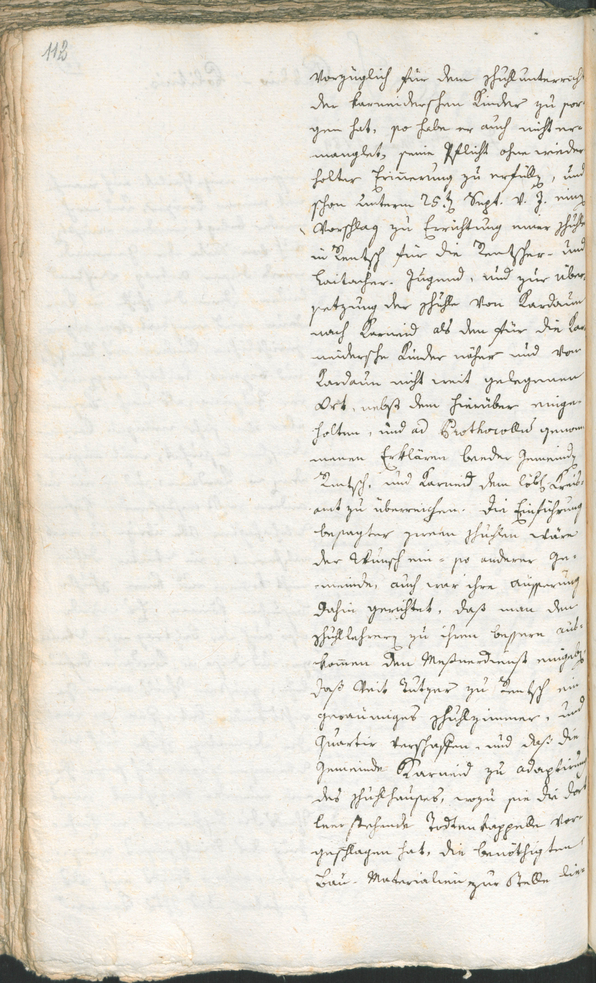 112
vorzüglich für dem Schulunterrich
der karneiderschen Kinder zu sor-
gen hat, so habe er auch nicht er-
manglet, seine Pflicht ohne wieder
holter Erinnerung zu erfüllen, und
schon unterm 25ten Sept. v. J. einen
Vorschlag zu Errichtung einer Schule
in Rentsch für die Rentscher- und
Laitacher- Jugend, und zur Über-
setzung der Schule von Kardaun
nach Karneid als den für die Kar
neidersche Kinder näher und von
Kardaun nicht weit gelegenen
Ort, nebst dem hierüber einge-
holten, und ad Prothocollum genom
menen Erklären beeder Gemeinden
Rentsch, und Karneid dem löbl. Kreis-
amt zu überreichen. Die Einführung
besagter zween Schulen wäre
der Wunsch ein- so anderer Ge-
meinde, auch war ihre Äusserung
dahin gerichtet, daß man den
Schullehrern zu ihrem bessern aus-
kommen den Meßnerdienst
daß Veit Rutzer zu Rentsch ein
geräumiges Schulzimmer, und
Quartir verschaffen, und daß die
Gemeinde Karneid zu adaptirung
des Schulhauses, wozu sie die dort
leer stehende Todtenkappelle vor-
geschlagen hat, die benöthigten
Bau- Materialien zur Stelle lie-